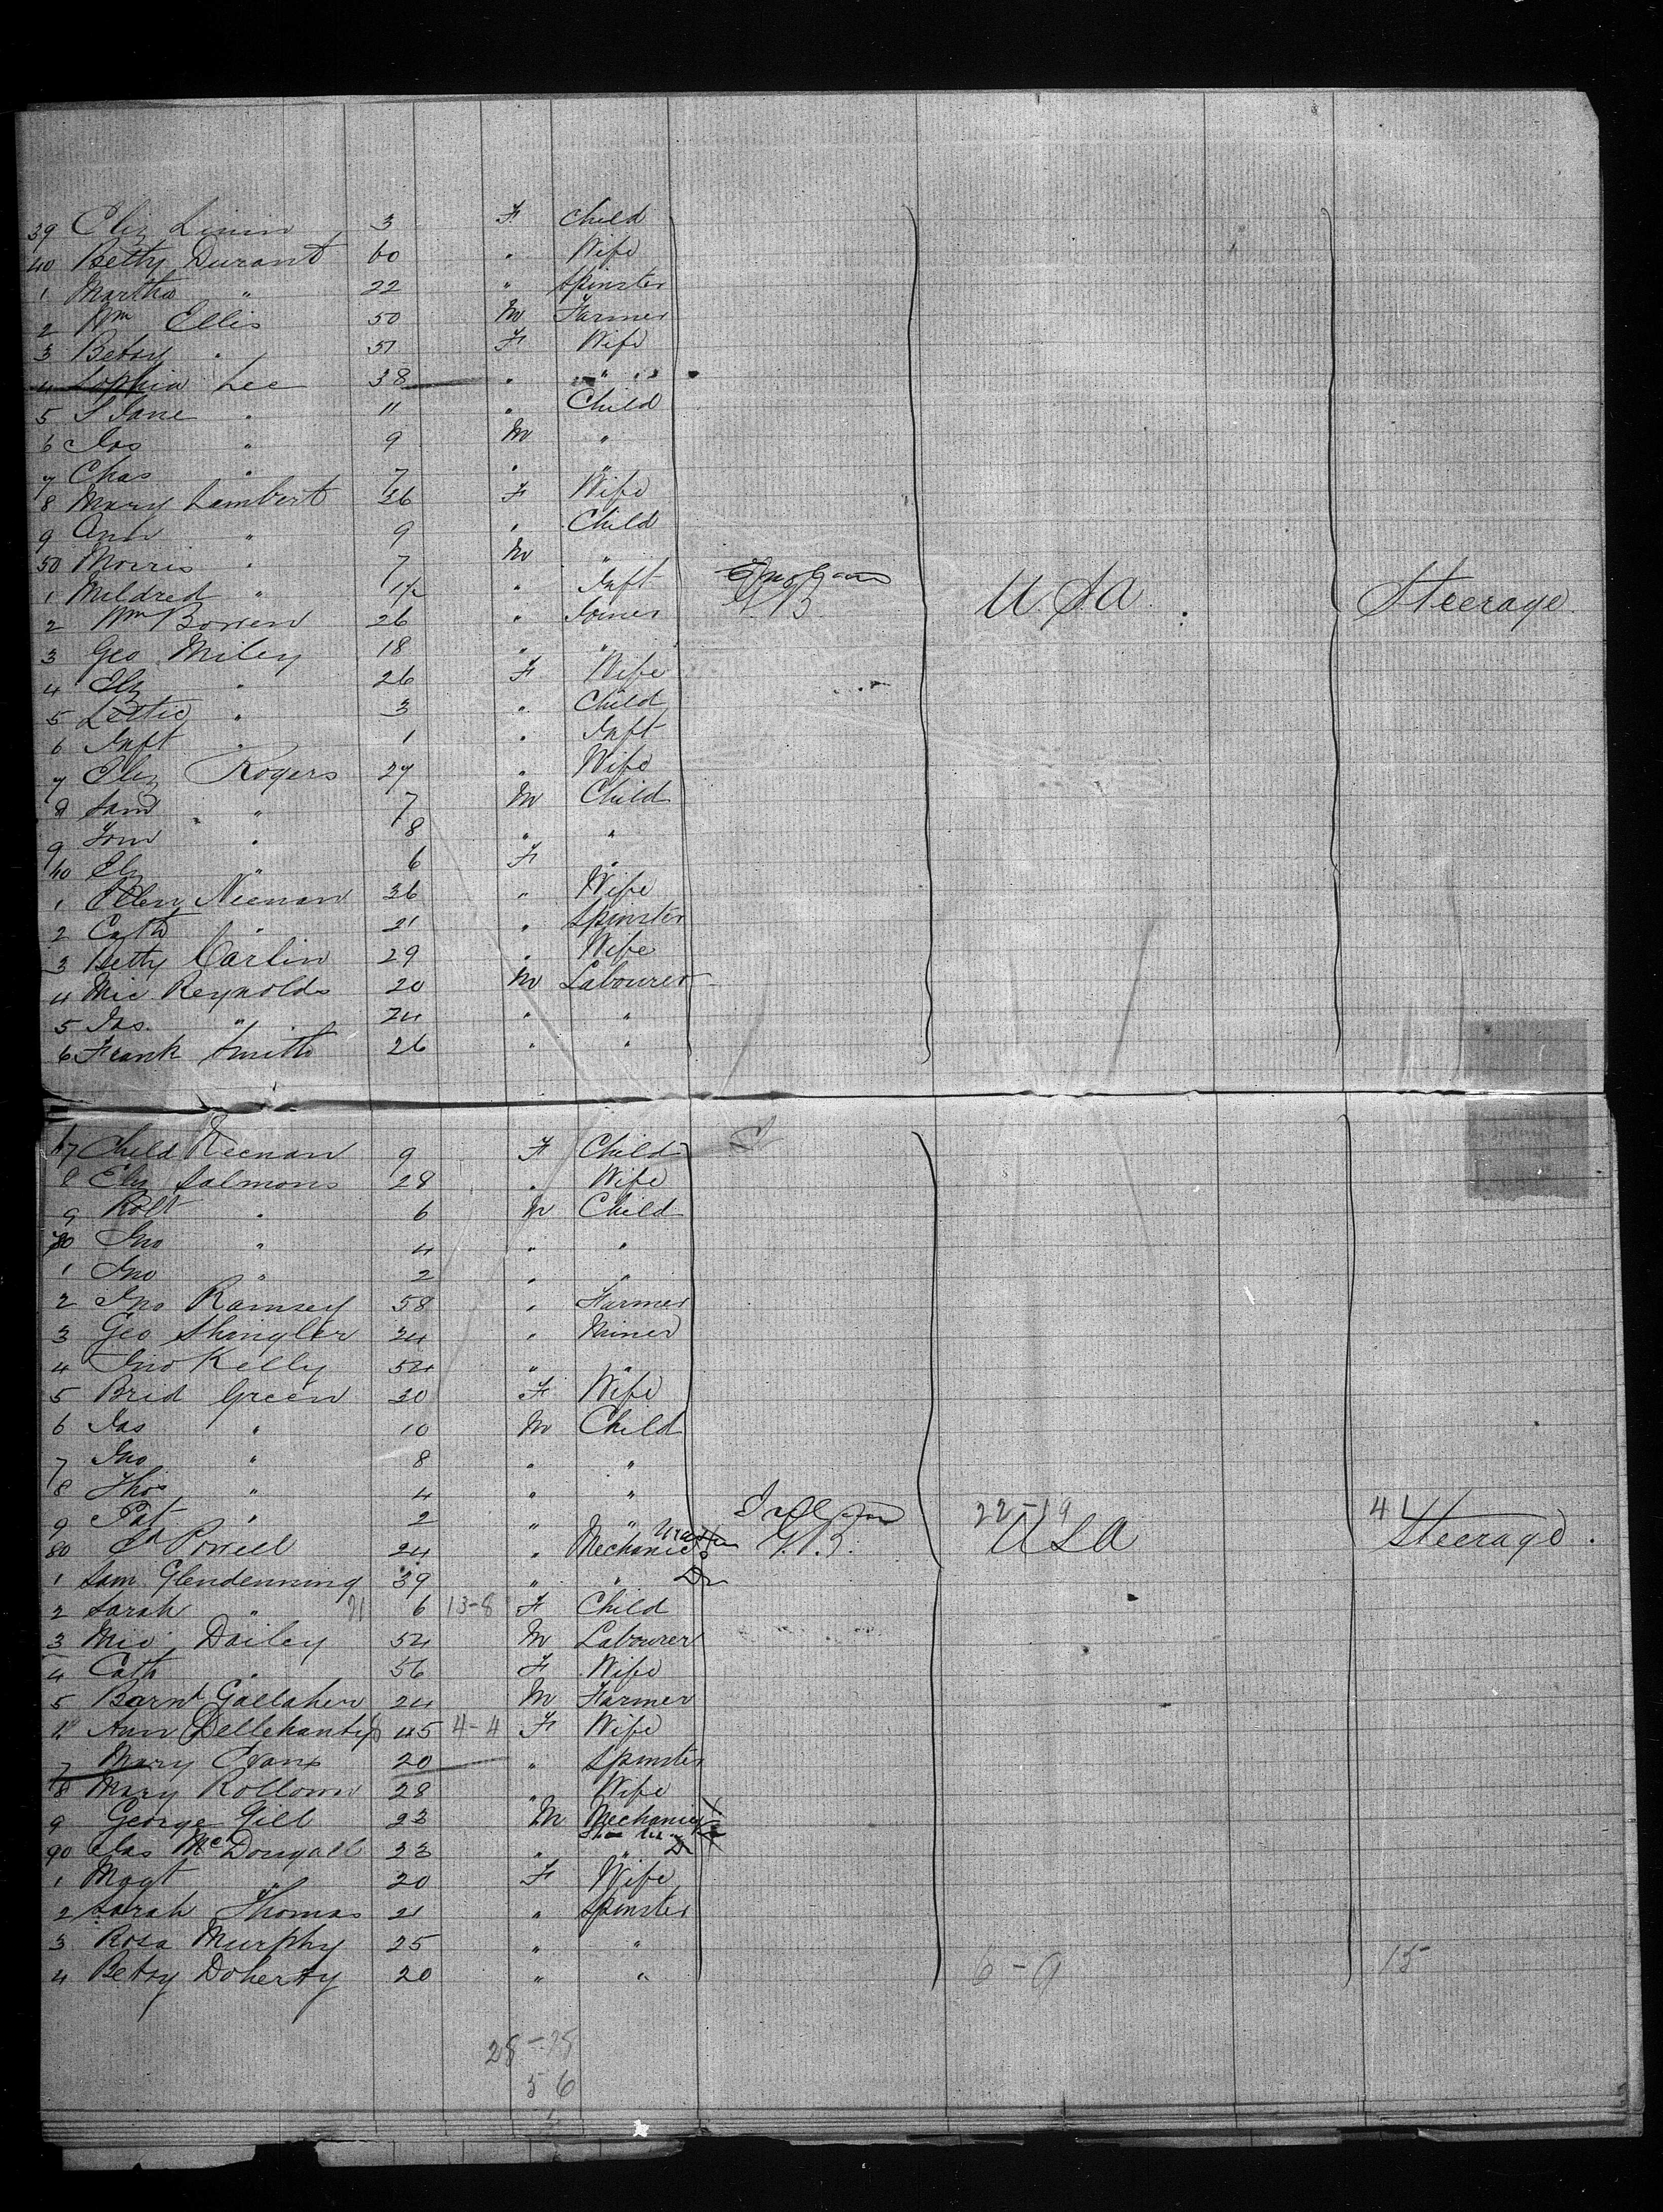 39 Eliz Linin 3 F Child
40 Betty Durant 60 " Wife
1 Martha " 22 " Spinster
2 Wm Ellis 50 M Farmer
3 Betsy " 51 F Wife
4 Sophia Lee 38 " "
5 S Jane " 11 " Child
6 Jas " 9 M "
7 Chas " 7 " "
8 Mary Lambert 26 F Wife
9 Ann " 9 " Child
50 Morris " 7 M "
1 Mildred " " Inft G.B. U.S.A. Steerage
2 Wm Bowen 26 " Joiner
3 Geo Miley 18 " "
4 Elz " 26 F Wife
5 Lettie " 3 " Child
6 Inft " 1 " Inft
7 Eliz Rogers 27 " Wife
8 Saml " 7 M Child
9 Tom " 8 " "
60 Elz " 6 F "
1 Ellen Neenan 36 " Wife
2 Cath " 21 " Spinster
3 Betty Carlin 29 " Wife
4 Mic Reynolds 20 M Labourer
5 Jas. " 24 " "
6 Frank Smith 26 " "
67 Child Keenan 9 F Child
8 Elz Salmons 28 " Wife
9 Robt " 6 M Child
70 Jno " 4 " "
1 Jno " 2 " "
2 Jno Ramsey 58 " Farmer
3 Geo Shingler 24 " Miner
4 Jno Kelly 54 " "
5 Brid Green 30 F Wife
6 Jas " 10 M Child
7 Jno " 8 " "
8 Thos " 4 " "
9 Pat " 2 " " 22-19 41
80 Ed Powell 24 " Mechanic G.B. USA Steerage.
1 Sam Glendenning 39 " "
2 Sarah " 6 13-8 F Child
3 Mic Dailey 54 M Labourer
4 Cath " 56 F Wife
5 Barnt Gallaher 24 M Farmer
Ann Dellehanty 45 4-4 F Wife
7 Mary Evans 20 " Spinster
8 Mary Rollown 28 " Wife
9 George Gill 23 M Mechanic
90 Jas McDougall 23 " "
1 Magt " 20 F Wife
2 Sarah Thomas 21 " Spinster
3 Rosa Murphy 25 " "
4 Betsy Doherty 20 " " 6-9 15
56